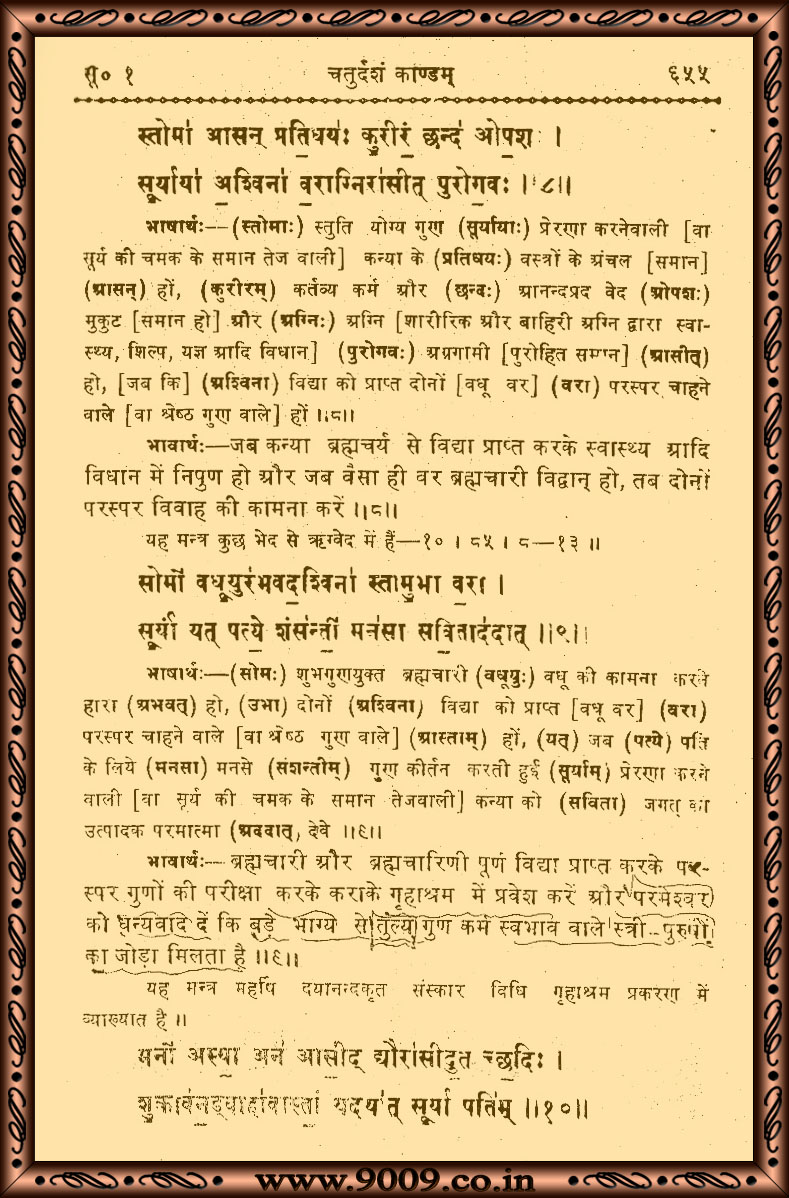 सू० १ चतुर्दशं काण्डम् ६५५
स्तोमा॑ आसन् प्रति॒धयः॑ कु॒रीरं॒ छन्द॑ ओप॒शः ।
सू॒र्याया॑ अ॒श्विना॑ व॒राग्निरा॑सीत् पुरोग॒वः ॥८॥
भाषार्थः—(स्तोमाः) स्तुति योग्य गुण (सूर्यायाः) प्रेरणा करनेवाली [वा
सूर्य की चमक के समान तेज वाली] कन्या के (प्रतिधयः) वस्त्रों के अंचल [समान]
(आसन्) हों, (कुरीरम्) कर्तव्य कर्म और (छन्दः) आनन्दप्रद वेद (ओपशः)
मुकुट [समान हो] और (अग्निः) अग्नि [शारीरिक और बाहिरी अग्नि द्वारा स्वा-
स्थ्य, शिल्प, यज्ञ आदि विधान] (पुरोगवः) अग्रगामी [पुरोहित समान] (आसीत्)
हो, [जब कि] (अश्विना) विद्या को प्राप्त दोनों [वधू वर] (वरा) परस्पर चाहने
वाले [वा श्रेष्ठ गुण वाले] हों ॥८॥
भावार्थः—जब कन्या ब्रह्मचर्य से विद्या प्राप्त करके स्वास्थ्य आदि
विधान में निपुण हो और जब वैसा ही वर ब्रह्मचारी विद्वान् हो, तब दोनों
परस्पर विवाह की कामना करें ॥८॥
यह मन्त्र कुछ भेद से ऋग्वेद में हैं—१० । ८५ । ८—१३ ॥
सोमो॑ वधू॒युर॑भवद॒श्विना॑ स्तामु॒भा व॒रा ।
सू॒र्यां यत् पत्ये॒ शंस॑न्तीं॒ मन॑सा सवि॒ताद॑दात् ॥९॥
भाषार्थः—(सोमः) शुभगुणयुक्त ब्रह्मचारी (वधूयुः) वधू की कामना करने
हारा (अभवत्) हो, (उभा) दोनों (अश्विना) विद्या को प्राप्त [वधू वर] (वरा)
परस्पर चाहने वाले [वा श्रेष्ठ गुण वाले] (आस्ताम्) हों, (यत्) जब (पत्ये) पति
के लिये (मनसा) मनसे (संशन्तीम्) गुण कीर्तन करती हुई (सूर्याम्) प्रेरणा करने
वाली [वा सूर्य की चमक के समान तेजवाली] कन्या को (सविता) जगत् का
उत्पादक परमात्मा (अददात्) देवे ॥९॥
भावार्थः—ब्रह्मचारी और ब्रह्मचारिणी पूर्ण विद्या प्राप्त करके पर-
स्पर गुणों की परीक्षा करके कराके गृहाश्रम में प्रवेश करें और परमेश्वर
को धन्यवाद दें कि बड़े भाग्य से तुल्य गुण कर्म स्वभाव वाले स्त्री-पुरुषों
का जोड़ा मिलता है ॥९॥
यह मन्त्र महर्षि दयानन्दकृत संस्कार विधि गृहाश्रम प्रकरण में
व्याख्यात है ॥
मनो॑ अस्या॒ अन॑ आसी॒द् द्यौरा॑सीदु॒त च्छ॒दिः ।
शु॒क्राव॑न॒ड्वाहा॑वास्तां॒ यदया॑त् सू॒र्या पति॑म् ॥१०॥
www.9009.co.in